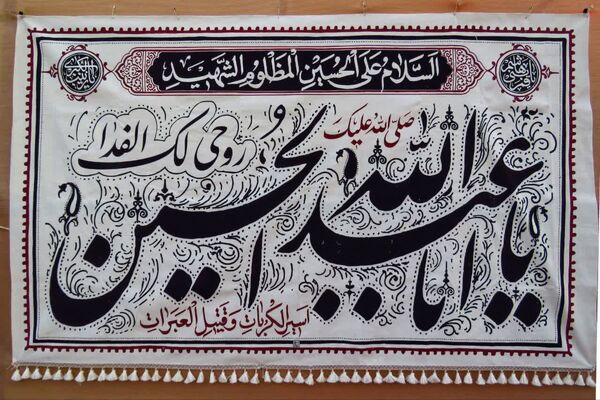 السلام علی الحسین المظلوم الشهید
صلی الله علیک
روحی لک الفدا
یا ابا عبد الله الحسین
اسیر الکربات و قتیل العبرات